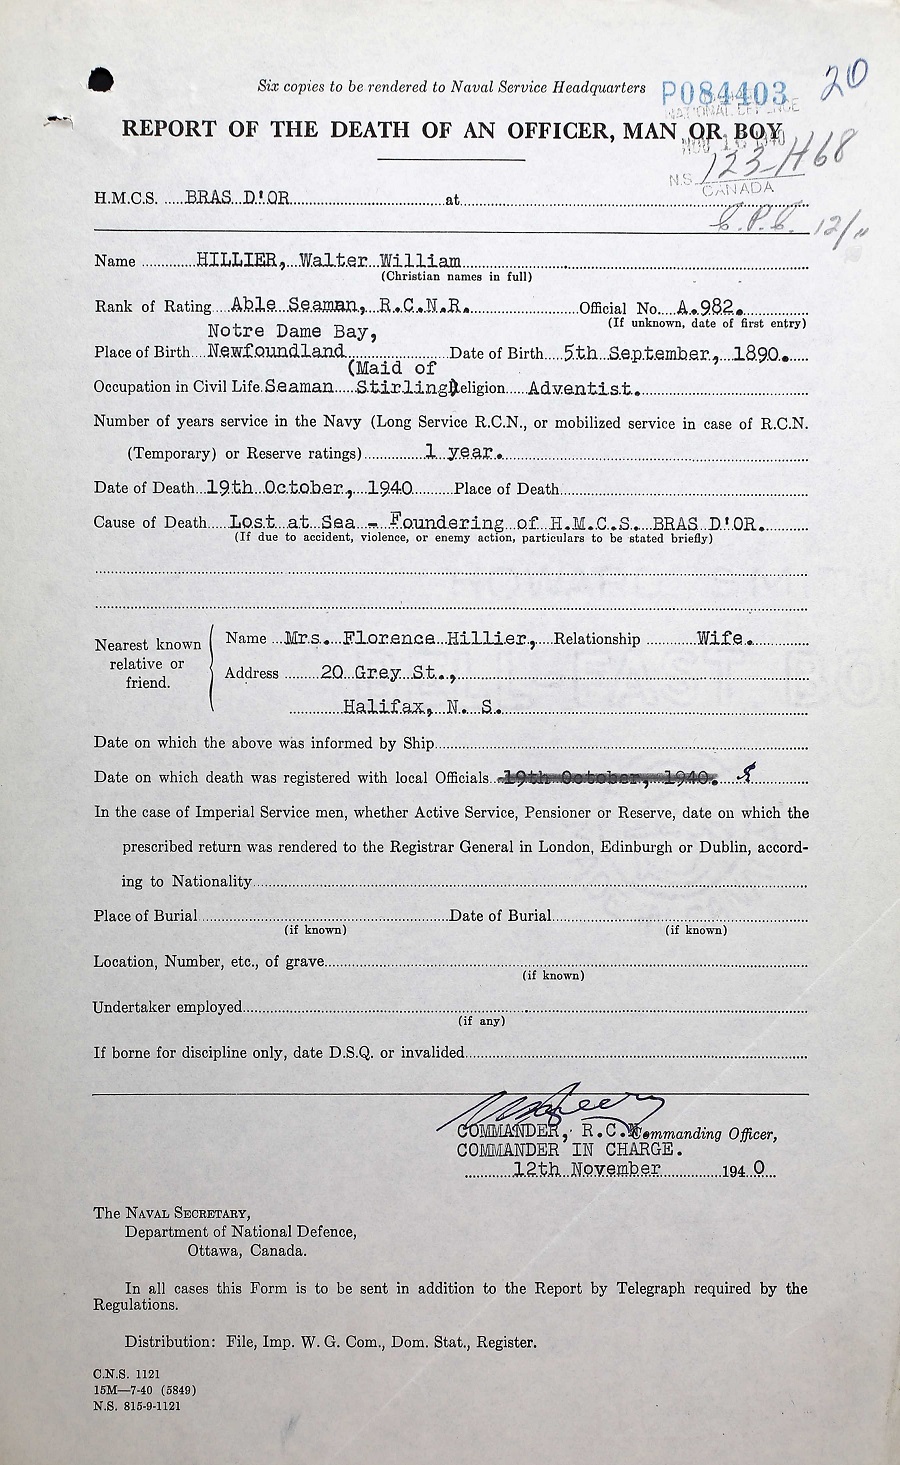 Six copies to be rendered to Naval Service Headquarters
P084403
20
NATIONAL DEFENCE
REPORT OF THE DEATH OF AN OFFICER, MAN OR BOY
N.S. 123-H68
CANADA
H.M.C.S. BRAS D'OR at
C.P.C. 12/11
Name HILLIER, Walter William
(Christian names in full)
Rank of Rating Able Seaman, R.C.N.R. Official No. A.982.
(If unknown, date of first entry)
Notre Dame Bay,
Place of Birth Newfoundland Date of Birth 5th September, 1890.
(Maid of
Occupation in Civil Life Seaman Stirling) Religion Adventist.
Number of years service in the Navy (Long Service R.C.N., or mobilized service in case of R.C.N.
(Temporary) or Reserve ratings) 1 year.
Date of Death 19th October, 1940 Place of Death
Cause of Death Lost at Sea - Foundering of H.M.C.S. BRAS D'OR.
(If due to accident, violence, or enemy action, particulars to be stated briefly)
Nearest known relative or friend.
Name Mrs. Florence Hillier, Relationship Wife.
Address 20 Grey St.,
Halifax, N. S.
Date on which the above was informed by Ship
Date on which death was registered with local Officials 19th October, 1940.
In the case of Imperial Service men, whether Active Service, Pensioner or Reserve, date on which the
prescribed return was rendered to the Registrar General in London, Edinburgh or Dublin, accord-
ing to Nationality
Place of Burial Date of Burial
(if known) (if known)
Location, Number, etc., of grave
(if known)
Undertaker employed
(if any)
If borne for discipline only, date D.S.Q. or invalided
COMMANDER, R.C.N. Commanding Officer,
COMMANDER IN CHARGE.
12th November 1940
The NAVAL SECRETARY,
Department of National Defence,
Ottawa, Canada.
In all cases this Form is to be sent in addition to the Report by Telegraph required by the
Regulations.
Distribution: File, Imp. W. G. Com., Dom. Stat., Register.
C.N.S. 1121
15M—7-40 (5849)
N.S. 815-9-1121